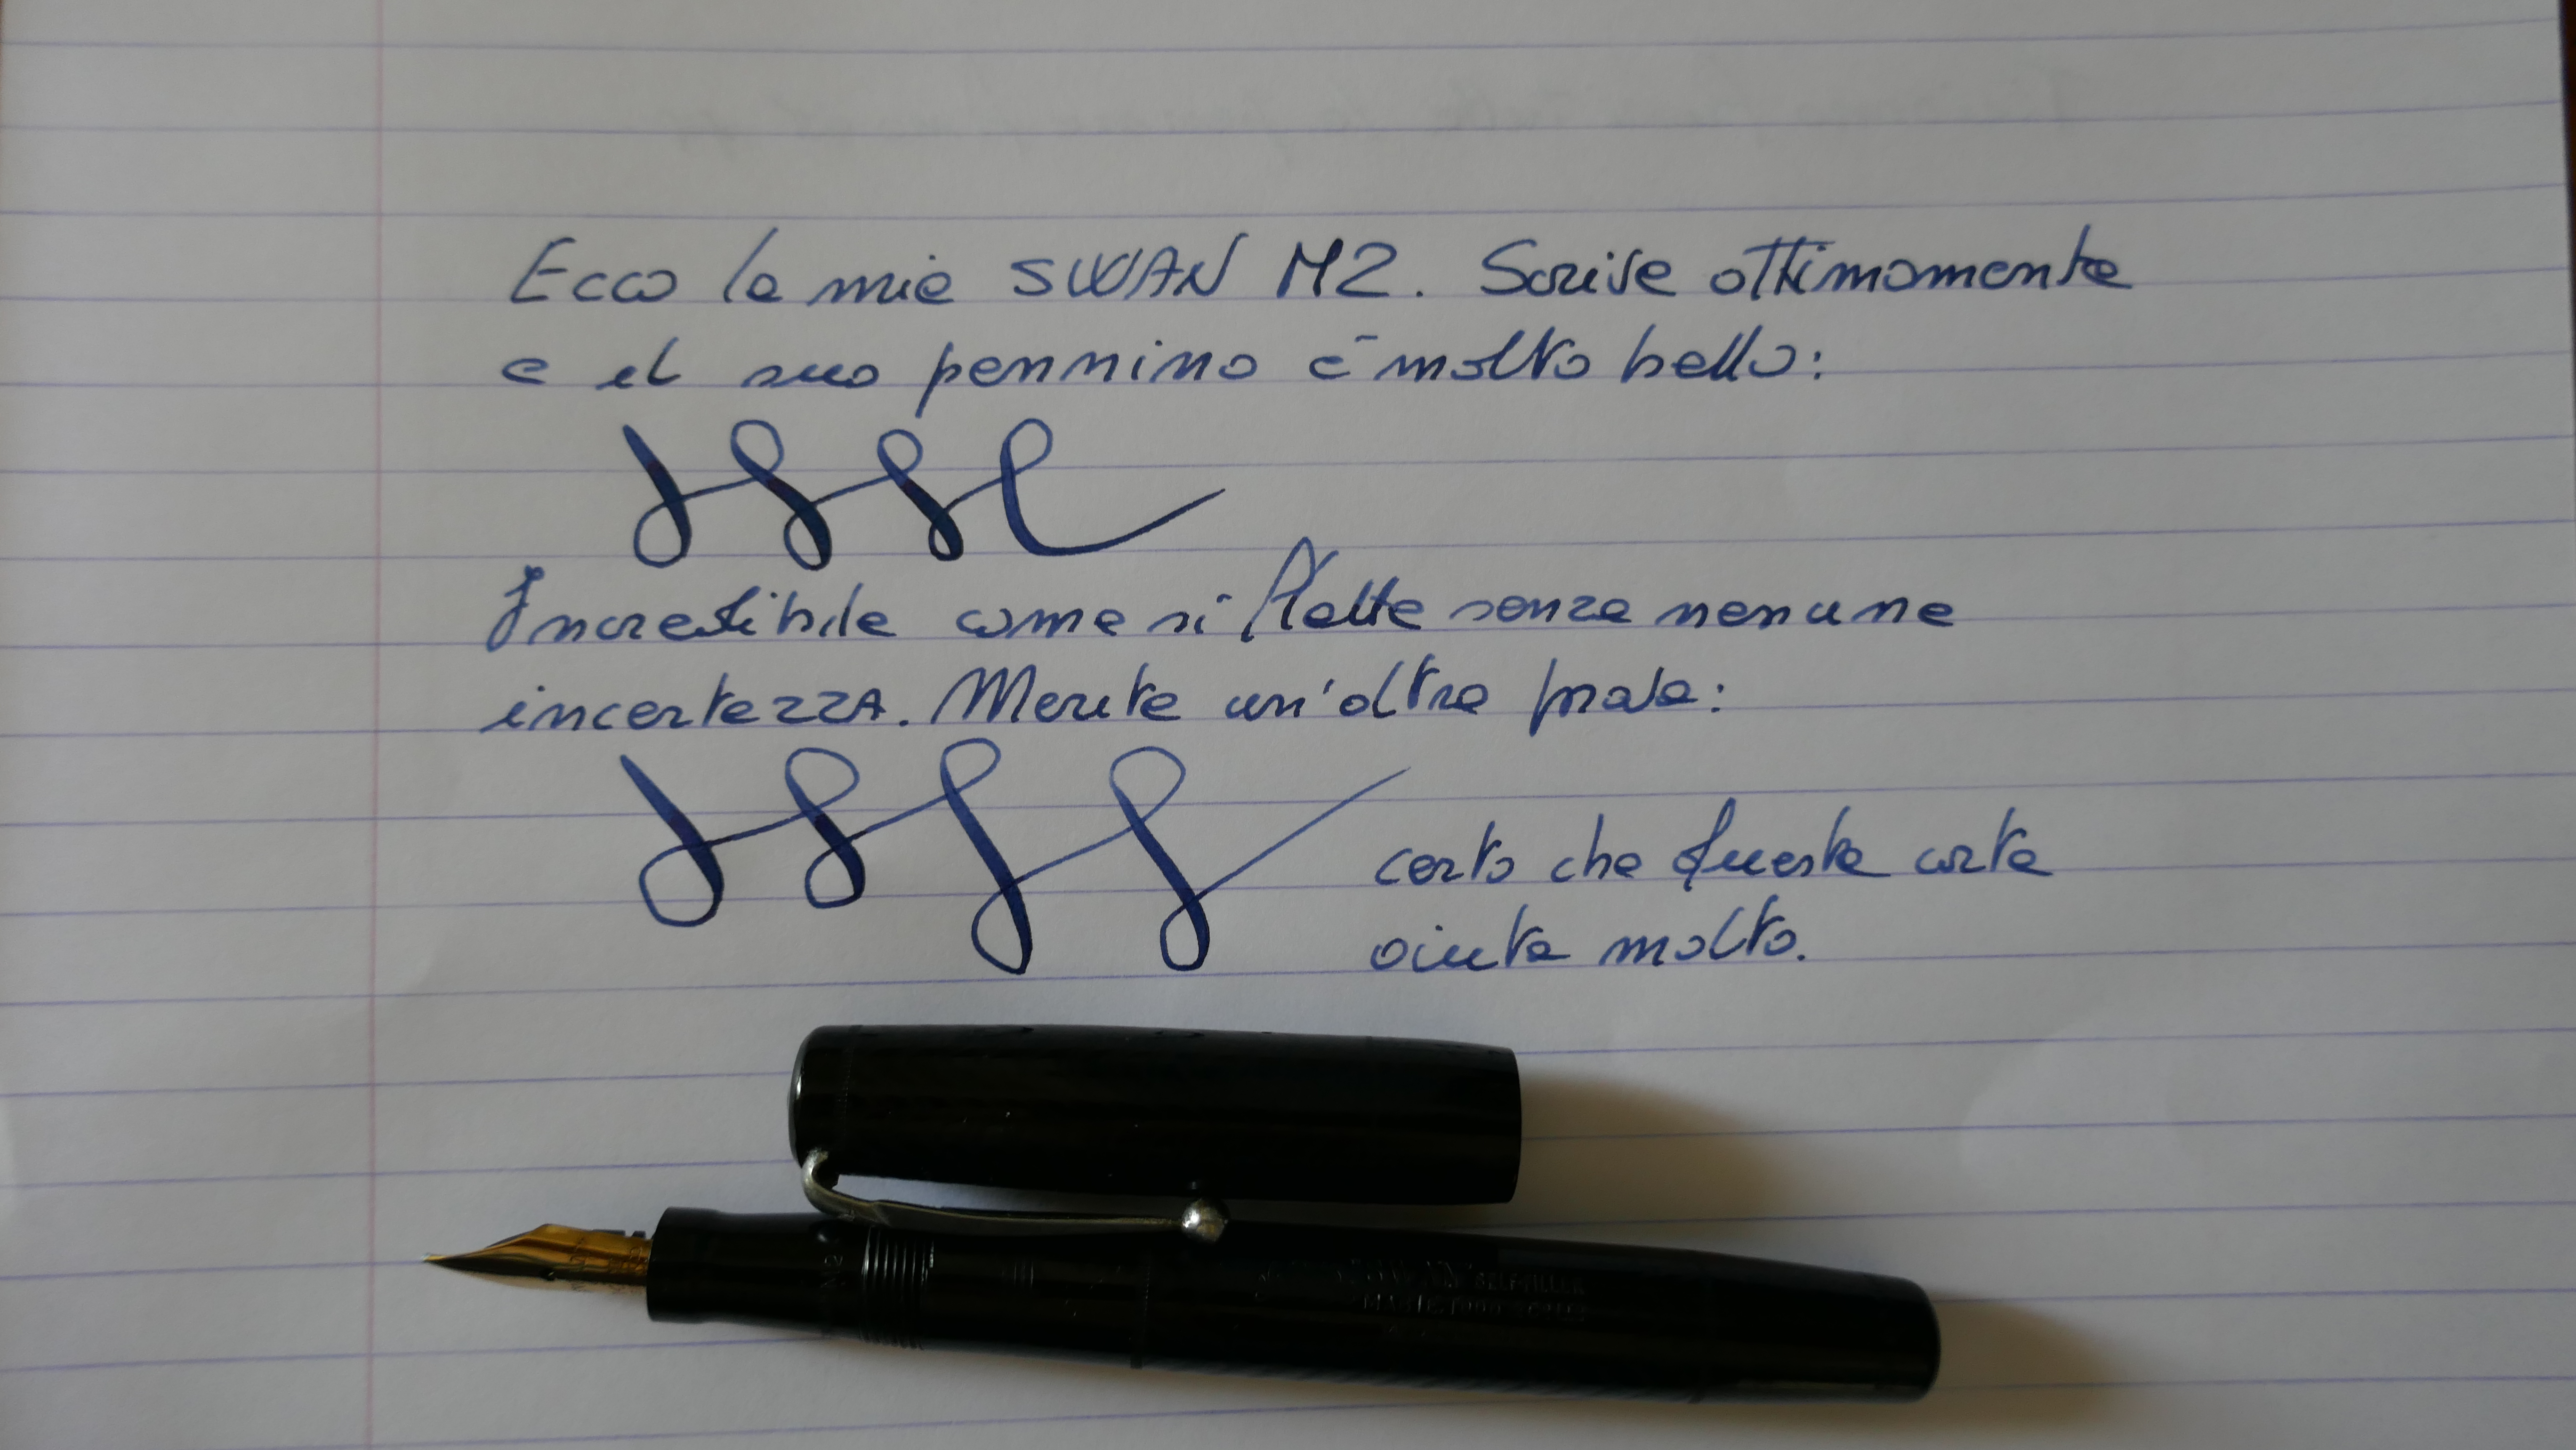 Ecco la mia SWAN M2. Scrive ottimamente
e il suo pennino è molto bello:
Incredibile come si flette senza nessuna
incertezza. Merita un'altra prova:
certo che questa carta
aiuta molto.
M2
SELF-FILLER
MABIE TODD